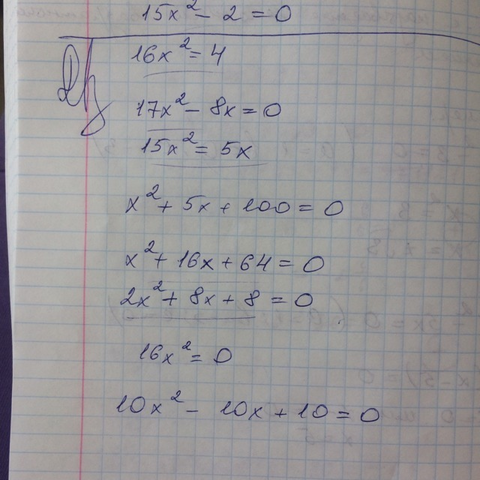 15x² - 2 = 0
16x² = 4
17x² - 8x = 0
15x² = 5x
x² + 5x + 100 = 0
x² + 16x + 64 = 0
2x² + 8x + 8 = 0
16x² = 0
10x² - 10x + 10 = 0